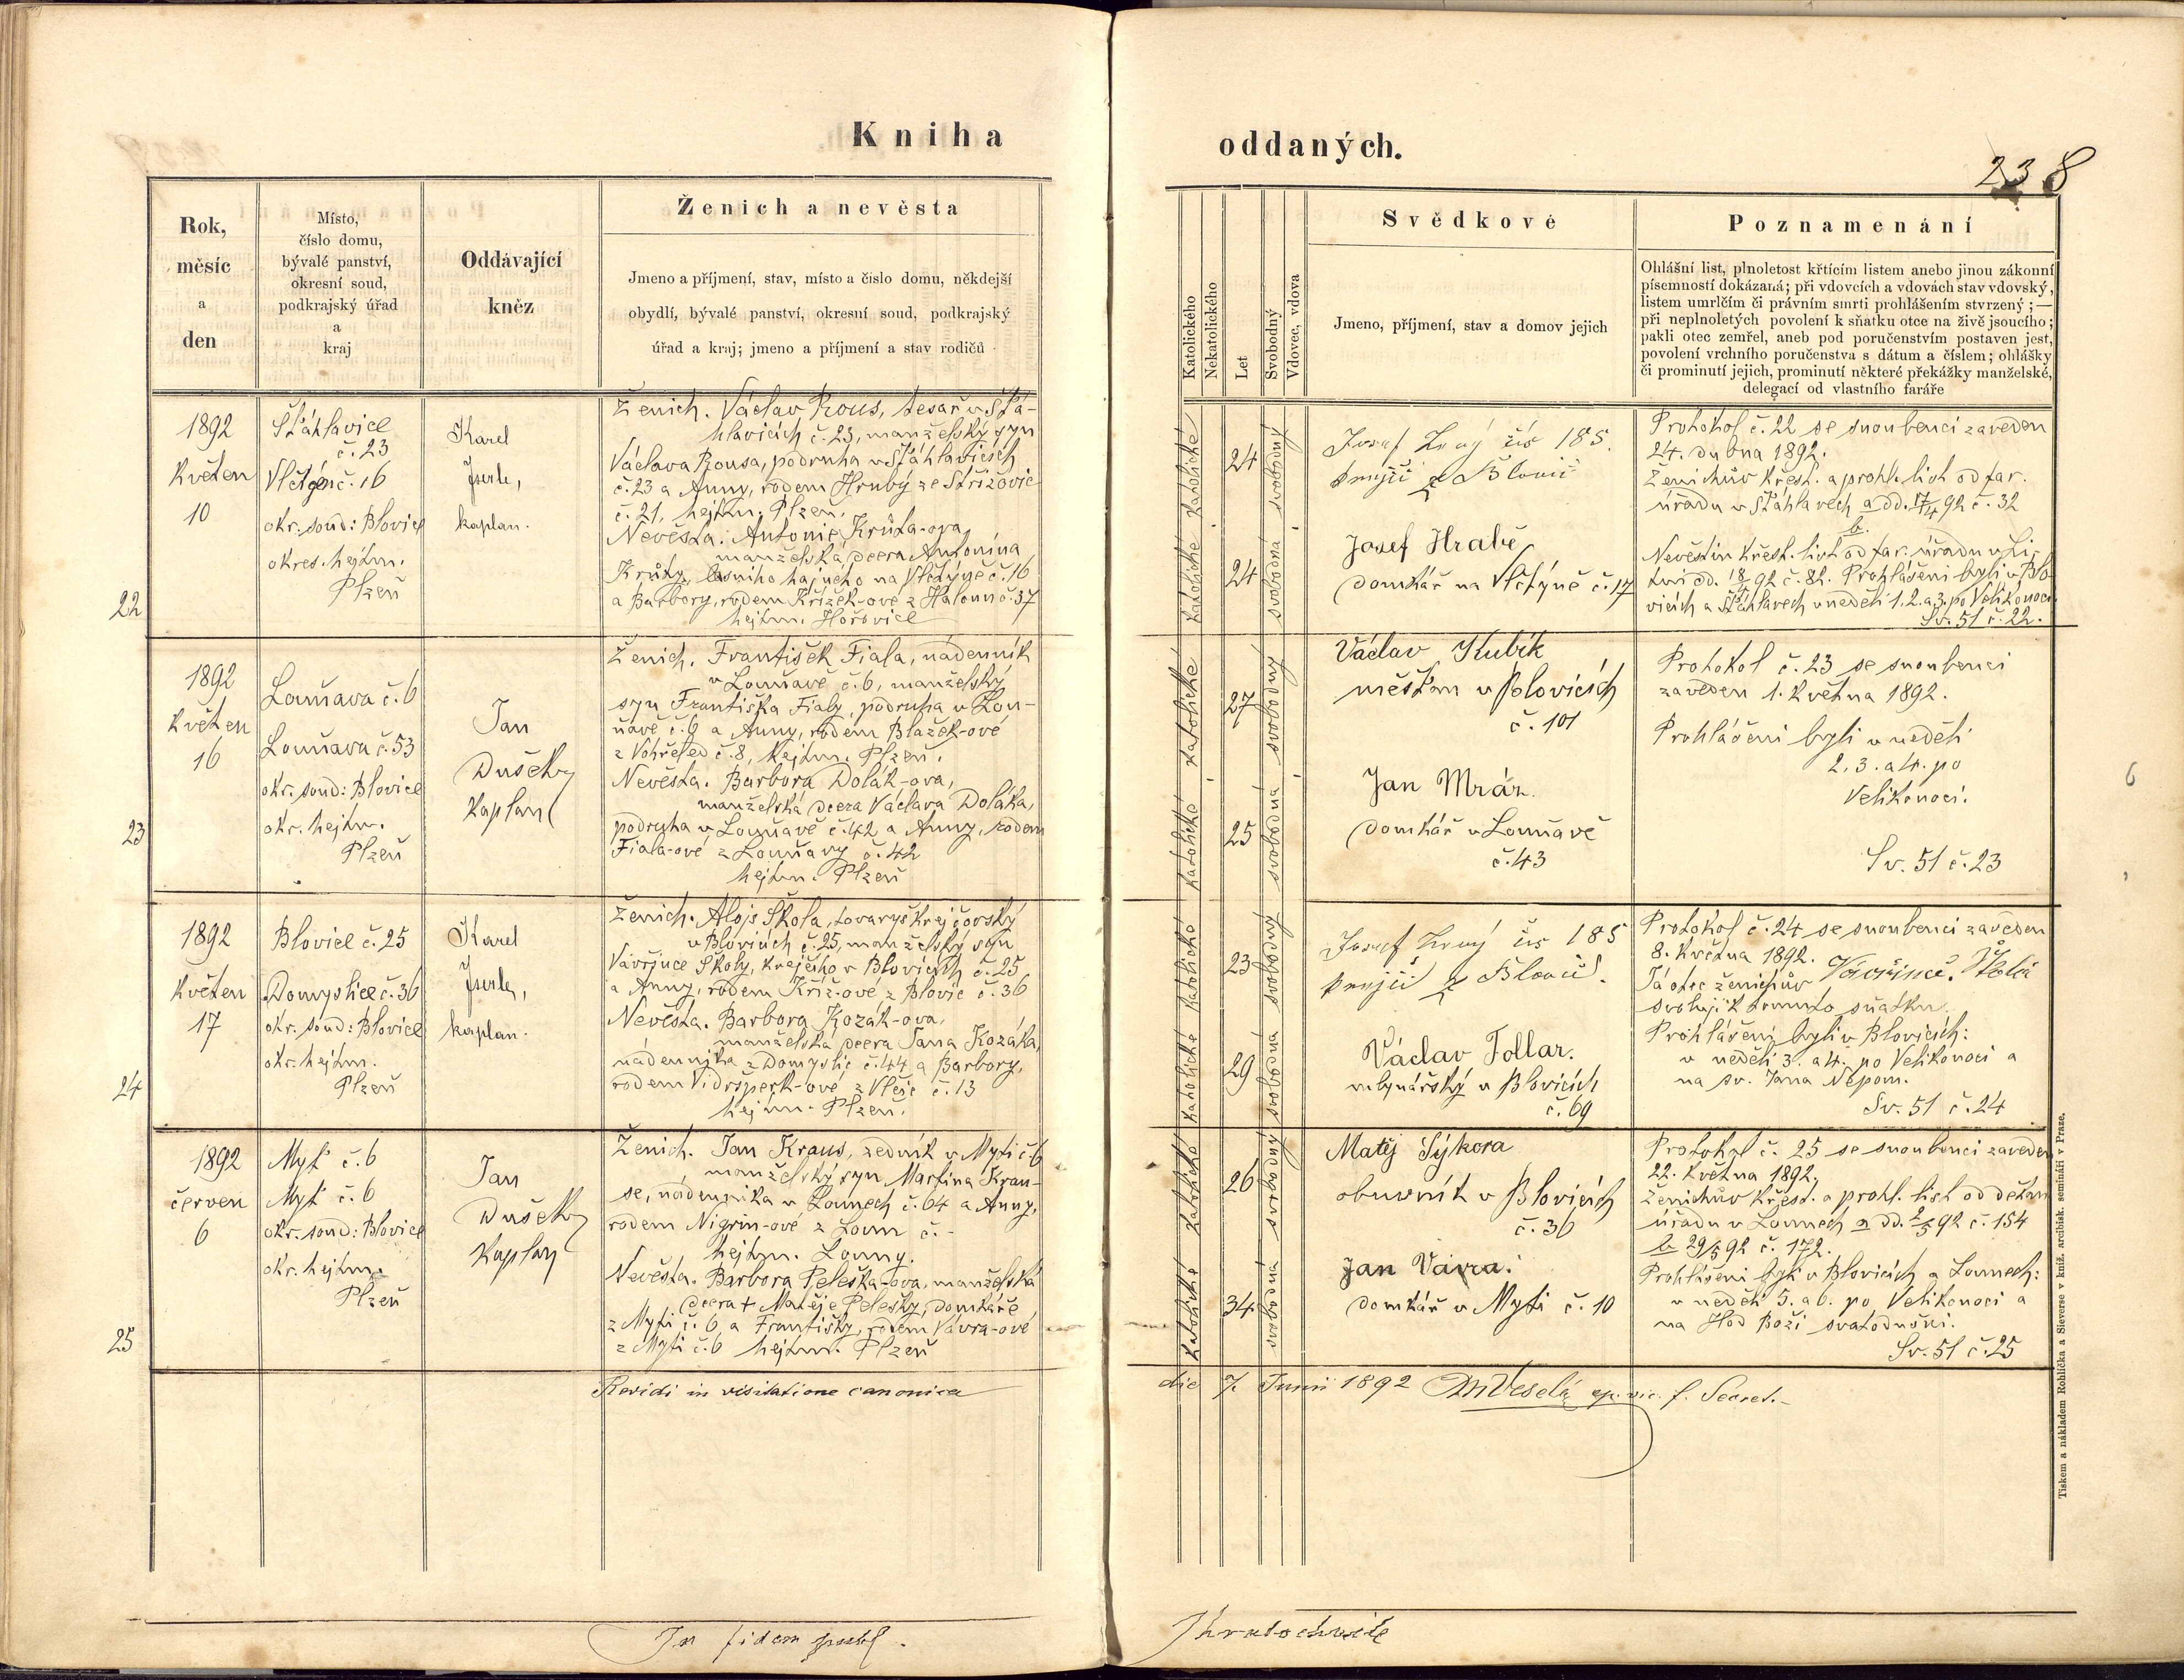 Kniha
oddaných.
238
Rok,
měsíc
a
den
Místo,
číslo domu,
bývalé panství,
okresní soud,
podkrajský úřad
a
kraj
Oddávající
kněz
Ženich a nevěsta
Jmeno a příjmení, stav, místo a čislo domu, někdejší
obydlí, bývalé panství, okresní soud, podkrajský
úřad a kraj; jmeno a příjmení a stav rodičů
Katolického
Nekatolického
Let
Svobodný
Vdovec, vdova
Svědkové
Jmeno, příjmení, stav a domov jejich
Poznamenání
Ohlášní list, plnoletost křtícím listem anebo jinou zákonní
písemností dokázaná; při vdovcích a vdovách stav vdovský,
listem umrlčím či právním smrti prohlášením stvrzený; —
při neplnoletých povolení k sňatku otce na živě jsoucího;
pakli otec zemřel, aneb pod poručenstvím postaven jest,
povolení vrchního poručenstva s dátum a číslem; ohlášky
či prominutí jejich, prominutí některé překážky manželské,
delegací od vlastního faráře
22
1892
Květen
10
Šťáhlavice
č. 23
Vlčtýn č. 16
okr. soud: Blovice
okres. hejtm.
Plzeň
Karel
kaplan.
Ženich. Václav Rous, tesař v Šťá-
hlavicích č. 23, manželský syn
Václava Rousa, podruha v Šťáhlavicích
č. 23 a Anny, rodem Hrubý ze Střížovic
č. 21, hejtm. Plzeň.
Nevěsta. Antonie Krůta-ova,
manželská dcera Antonína
Krůty, lesního hajného na Vlčtýně č. 16
a Barbory, rodem Křížek-ové z Haloun č. 37
hejtm. Hořovice
katolické katolické
24
24
svobodný
svobodná
Josef čís 185
z Blovic
Josef Hrabě
domkář na Vlčtýně č. 17
Protokol č. 22 se snoubenci zaveden
24. dubna 1892.
Ženichův křest. a prohl. list od far.
úřadu v Šťáhlavech a dd. 17/4 92 č. 32
b.
Nevěstin křest. list od far. úřadu v Li-
tni dd. 18/4 92 č. 82. Prohlášeni byli v Blo-
vicích a Šťáhlavech v neděli 1. 2. a 3. po Velikonoci
Sv. 51 č. 22.
23
1892
Květen
16
Louňava č. 6
Louňava č. 53
okr. soud: Blovice
okr. hejtm.
Plzeň
Jan
Dušek
Kaplan
Ženich. František Fiala, nádenník
v Louňavě č. 6, manželský
syn Františka Fialy, podruha v Lou-
ňavě č. 6 a Anny, rodem Blažek-ové
z Vohřeled č. 8, hejtm. Plzeň.
Nevěsta. Barbora Dolák-ova,
manželská dcera Václava Doláka,
podruha v Louňavě č. 42 a Anny, rodem
Fiala-ové z Louňavy č. 42
hejtm. Plzeň
katolické katolické
27
25
svobodný
svobodná
Václav Kubík
měšťan v Blovicích
č. 101
Jan Mráz.
domkář v Louňavě
č. 43
Protokol č. 23 se snoubenci
zaveden 1. Května 1892.
Prohlášeni byli v neděli
2. 3. a 4. po
Velikonoci.
Sv. 51 č. 23
24
1892
Květen
17
Blovice č. 25
Domyslice č. 36
okr. soud: Blovice
okr. hejtm.
Plzeň
Karel
kaplan.
Ženich. Alojs Škola, tovaryš krejčovský
v Blovicích č. 25, manželský syn
Vavřince Školy, krejčího v Blovicích č. 25
a Anny, rodem Kříž-ové z Blovic č. 36
Nevěsta. Barbora Kozák-ova,
manželska dcera Jana Kozáka,
nádenníka z Domyslic č. 44 a Barbory,
rodem Vidršperk-ové z Vlčic č. 13
hejtm. Plzeň.
katolické katolické
23
29
svobodný
svobodná
Josef čís 185
z Blovic.
Václav Follar.
mlynářský v Blovicích
č. 69
Protokol č. 24 se snoubenci zaveden
8. Května 1892.
Já otec ženichův Vavřinec Škola
svoluji k tomuto sňatku.
Prohlášeni byli v Blovicích:
v neděli 3. a 4. po Velikonoci a
na sv. Jana Nepom.
Sv. 51 č. 24
25
1892
červen
6
Myť č. 6
Myť č. 6
okr. soud: Blovice
okr. hejtm.
Plzeň
Jan
Dušek
Kaplan
Ženich. Jan Kraus, zedník v Myti č. 6
manželský syn Martina Krau-
se, nádenníka v Lounech č. 64 a Anny,
rodem Nigrin-ové z Loun č. -
hejtm. Louny.
Nevěsta. Barbora Peleška-ova, manželská
dcera + Matěje Pelešky, domkáře
z Myti č. 6 a Františky, rodem Vávra-ové
z Myti č. 6 hejtm. Plzeň
katolické katolické
26
34
svobodný
svobodná
Matěj Sýkora
obuvník v Blovicích
č. 36
Jan Vávra.
domkář v Myti č. 10
Protokol č. 25 se snoubenci zaveden
22. Května 1892.
Ženichův křest. a prohl. list od děkan.
úřadu v Lounech a dd. 2/5 92 č. 154
b. 29/5 92 č. 172.
Prohlášeni byli v Blovicích a Lounech:
v neděli 5. a 6. po Velikonoci a
na Hod Boží svatodušní.
Sv. 51 č. 25
Revidi in visitatione canonica
die 7. Junii 1892 Veselý ep. vic. f. Secret.
In fidem publ.
Tiskem a nákladem Rohlíčka a Sieverse v kníž. arcibisk. semináři v Praze.